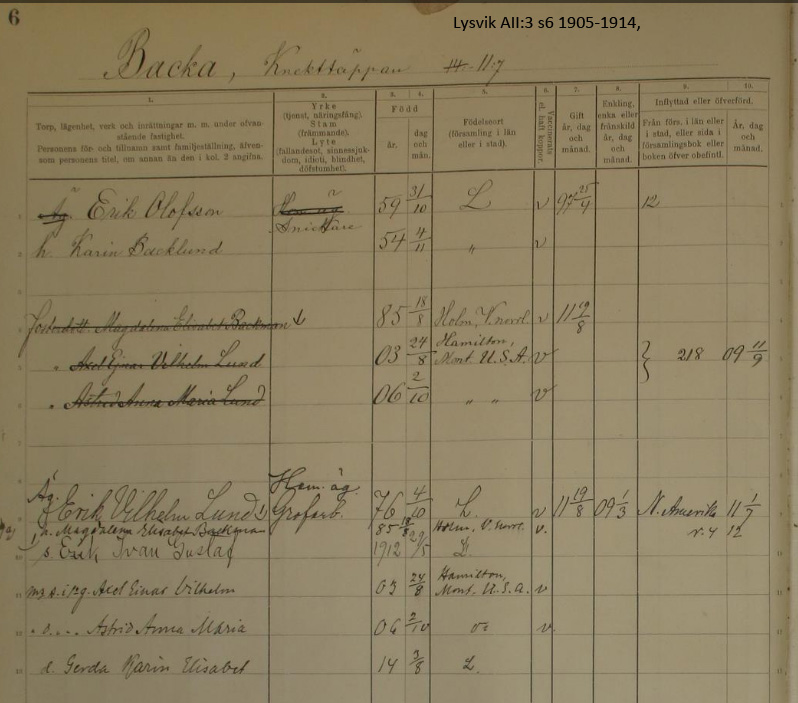 6
Lysvik AII:3 s6 1905-1914,
Backa, Knekttäppan 11:7
1. 2. 3. 4. 5. 6. 7. 8. 9. 10.
Torp, lägenhet, verk och inrättningar m. m. under ofvanstående fastighet.
Personens för- och tillnamn samt familjeställning, äfvensom personens titel, om annan än den i kol. 2 angifna.
Yrke
(tjenst, näringsfång).
Stam
(främmande).
Lyte
(fallandesot, sinnessjukdom, idioti, blindhet, döfstumhet).
Född
år.
dag och mån.
Födelseort
(församling i län eller i stad).
Vaccinerats el. haft koppor.
Gift
år, dag och månad.
Enkling, enka eller frånskild
år, dag och månad.
Inflyttad eller öfverförd.
Från förs. i län eller i stad, eller sida i församlingsbok eller boken öfver obefintl.
År, dag och månad.
Äg. Erik Olofsson Hem.äg Snickare 59 31/10 L v 12
h. Karin Backlund 54 4/11 " v
Fosterdott. Magdalena Elisabet Backman 85 18/8 Holm, V.norrl. v 11 19/8
" Axel Ejnar Vilhelm Lund 03 24/8 Hamilton, Mont. U.S.A. v 218 09 11/9
" Astrid Anna Maria Lund 06 2/10 " " v
Äg. Erik Vilhelm Lund Hem. äg. Grofarb. 76 4/10 L. v 11 19/8 09 1/3 N. Amerika 11 1/7
Magdalena Elisabet Backman 85 18/8 Holm, V. norrl. v. 12
s. Erik Ivan Gustaf 1912 L
Axel Einar Vilhelm 03 24/8 Hamilton, Mont. U.S.A. v
Astrid Anna Maria 06 2/10 v
d. Gerda Karin Elisabet 14 3/8 L.